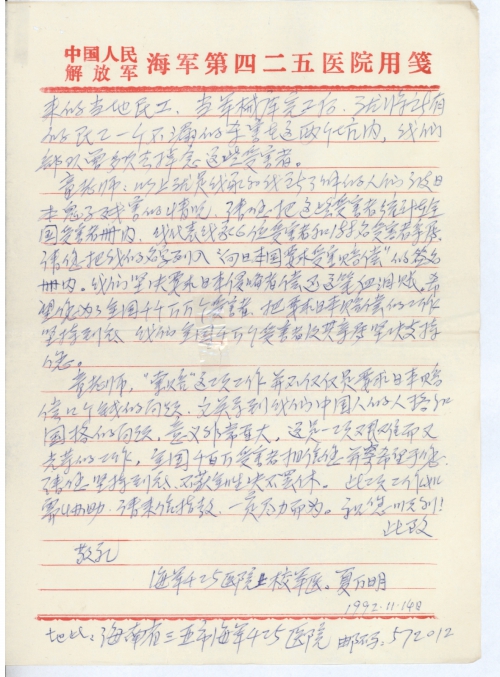 中国人民
解放军 海军第四二五医院用笺
来的当地民工,当军械库完工后,
的民工一个不漏的 害在这两个坑内,我们
部队曾多次去 这些受害者。
老师:以上就是我 和我 了解的人们被日
本鬼子残害的情况,请您把这些受害者统计在全
国受害者册内,我代表我 6位受害者和18 名受害者
请您把我的名字列入“向日本国要求受害赔偿”的签名
册内。我们坚决要求日本侵略者偿还这笔血泪账。希
望您为了全国千千万万个受害者,把要求日本赔偿的工作
坚持到底,我们全国千万个受害者及其 坚决支持
您。
老师,“索赔”这项工作并不仅仅是要求日本赔
偿几个钱的问题,它关系到我们中国人的人格和
国格的问题,意义非常重大,这是一项艰难而又
光荣的工作,全国千百万受害者相信您并寄希望于您,
请您坚持到底、不获全胜决不罢休。此项工作如
需 协助,请来信指教,一定尽力而为。祝您顺利!
此致
敬礼
海军425医院上校军医。夏万明
1992.11.14日
地址:海南省三亚市海军425医院 邮编:572012